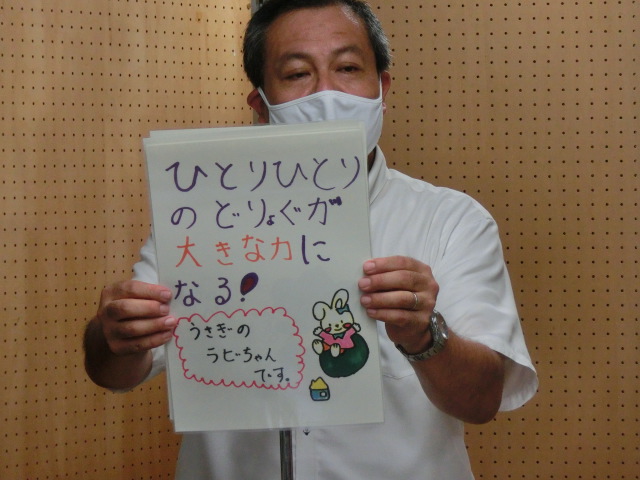 ひとりひとり
のどりょぐが
大きな力に
なる!
うさぎーの
ラビーちゃん
です。